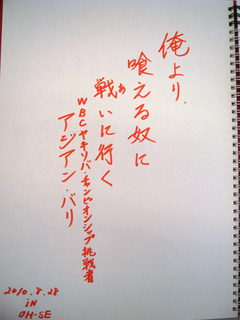 俺より、
喰える奴に
戦いに行く
あ
WBCヤキソバ・チャンピオンシップ挑戦者
アジアン・バリ
2010.8.28
iN
OH-SE